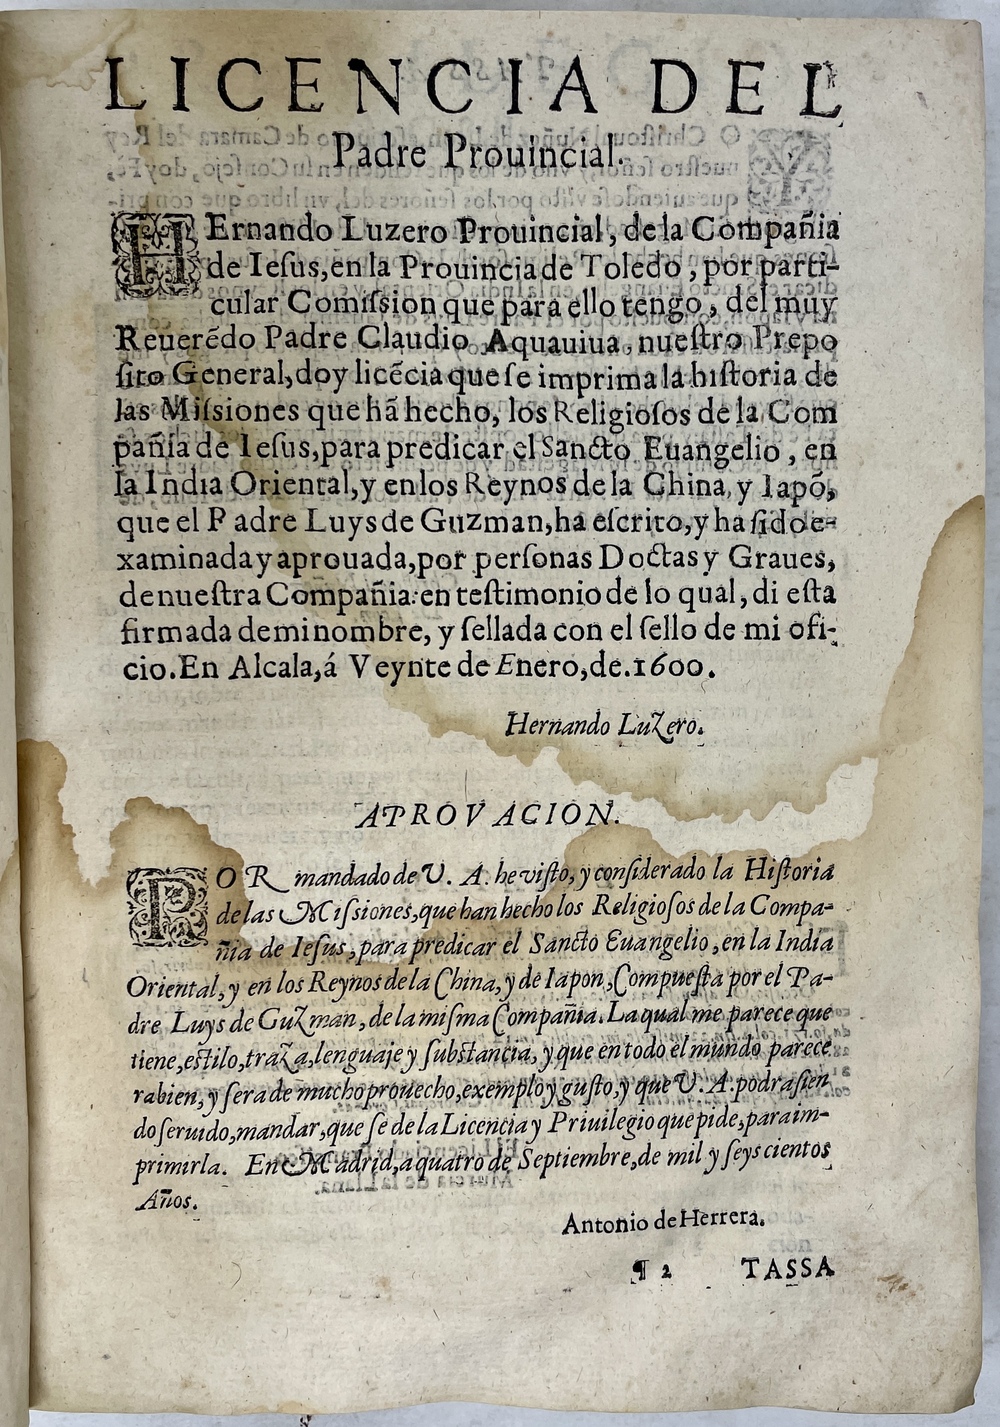 LICENCIA DEL
Padre Prouincial.
HErnando Luzero Prouincial, de la Compañia
de Iesus, en la Prouincia de Toledo, por parti-
cular Comission que para ello tengo, del muy
Reuerẽdo Padre Claudio Aquauiua, nuestro Prepo
sito General, doy licẽcia que se imprima la historia de
las Missiones que hã hecho, los Religiosos de la Com
pañia de Iesus, para predicar el Sancto Euangelio, en
la India Oriental, y en los Reynos de la China, y Iapõ,
que el Padre Luys de Guzman, ha escrito, y ha sido e-
xaminada y aprouada, por personas Doctas y Graues,
de nuestra Compañia: en testimonio de lo qual, di esta
firmada de mi nombre, y sellada con el sello de mi ofi-
cio. En Alcala, á Veynte de Enero, de. 1600.
Hernando Luzero.
APROVACION.
POR mandado de V. A. he visto, y considerado la Historia
de las Missiones, que han hecho los Religiosos de la Compa-
ñia de Iesus, para predicar el Sancto Euangelio, en la India
Oriental, y en los Reynos de la China, y de Iapon, Compuesta por el Pa-
dre Luys de Guzman, de la misma Compañia. La qual me parece que
tiene, estilo, traza, lenguaje y substancia, y que en todo el mundo parece
ra bien, y sera de mucho prouecho, exemplo y gusto, y que V. A. podra sien
do seruido, mandar, que se de la Licencia y Priuilegio que pide, para im-
primirla. En Madrid, a quatro de Septiembre, de mil y seys cientos
Años.
Antonio de Herrera.
¶ 2 TASSA